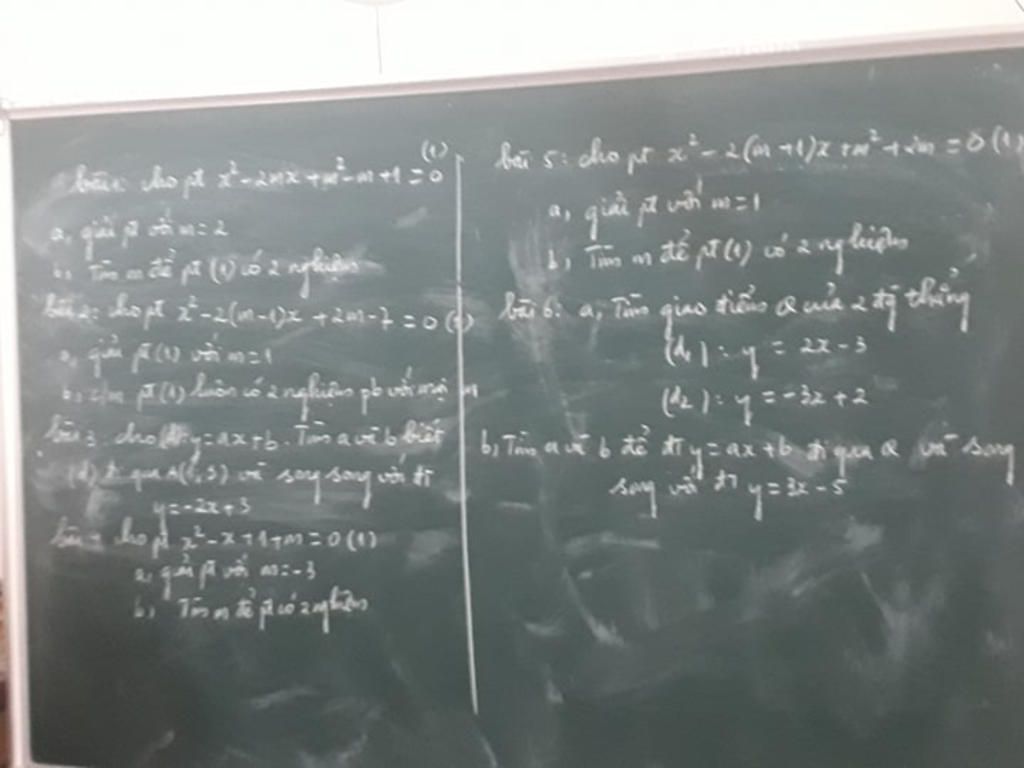 bài 1: cho pt x² - 2mx + m² - m + 1 = 0 (1)
a, giải pt với m = 2
b, Tìm m để pt (1) có 2 nghiệm
bài 2: cho pt x² - 2(m-1)x + 2m - 7 = 0 (1)
a, giải pt (1) với m = 1
b, c/m pt (1) luôn có 2 nghiệm pb với mọi m
bài 3 cho y = ax + b. Tìm a và b biết
(d) đi qua và song song với đt
y = -2x + 3
bài cho pt x² - x + 1 + m = 0 (1)
a, giải pt với m = -3
b, Tìm m để pt có 2 nghiệm
bài 5: cho pt x² - 2(m+1)x + m² + 2m = 0 (1)
a, giải pt với m = 1
b, Tìm m để pt (1) có 2 nghiệm
bài 6: a, Tìm giao điểm Q của 2 thẳng
(d₁): y = 2x - 3
(d₂): y = -3x + 2
b, Tìm a và b để đt y = ax + b đi qua Q và song
song với đt y = 3x - 5